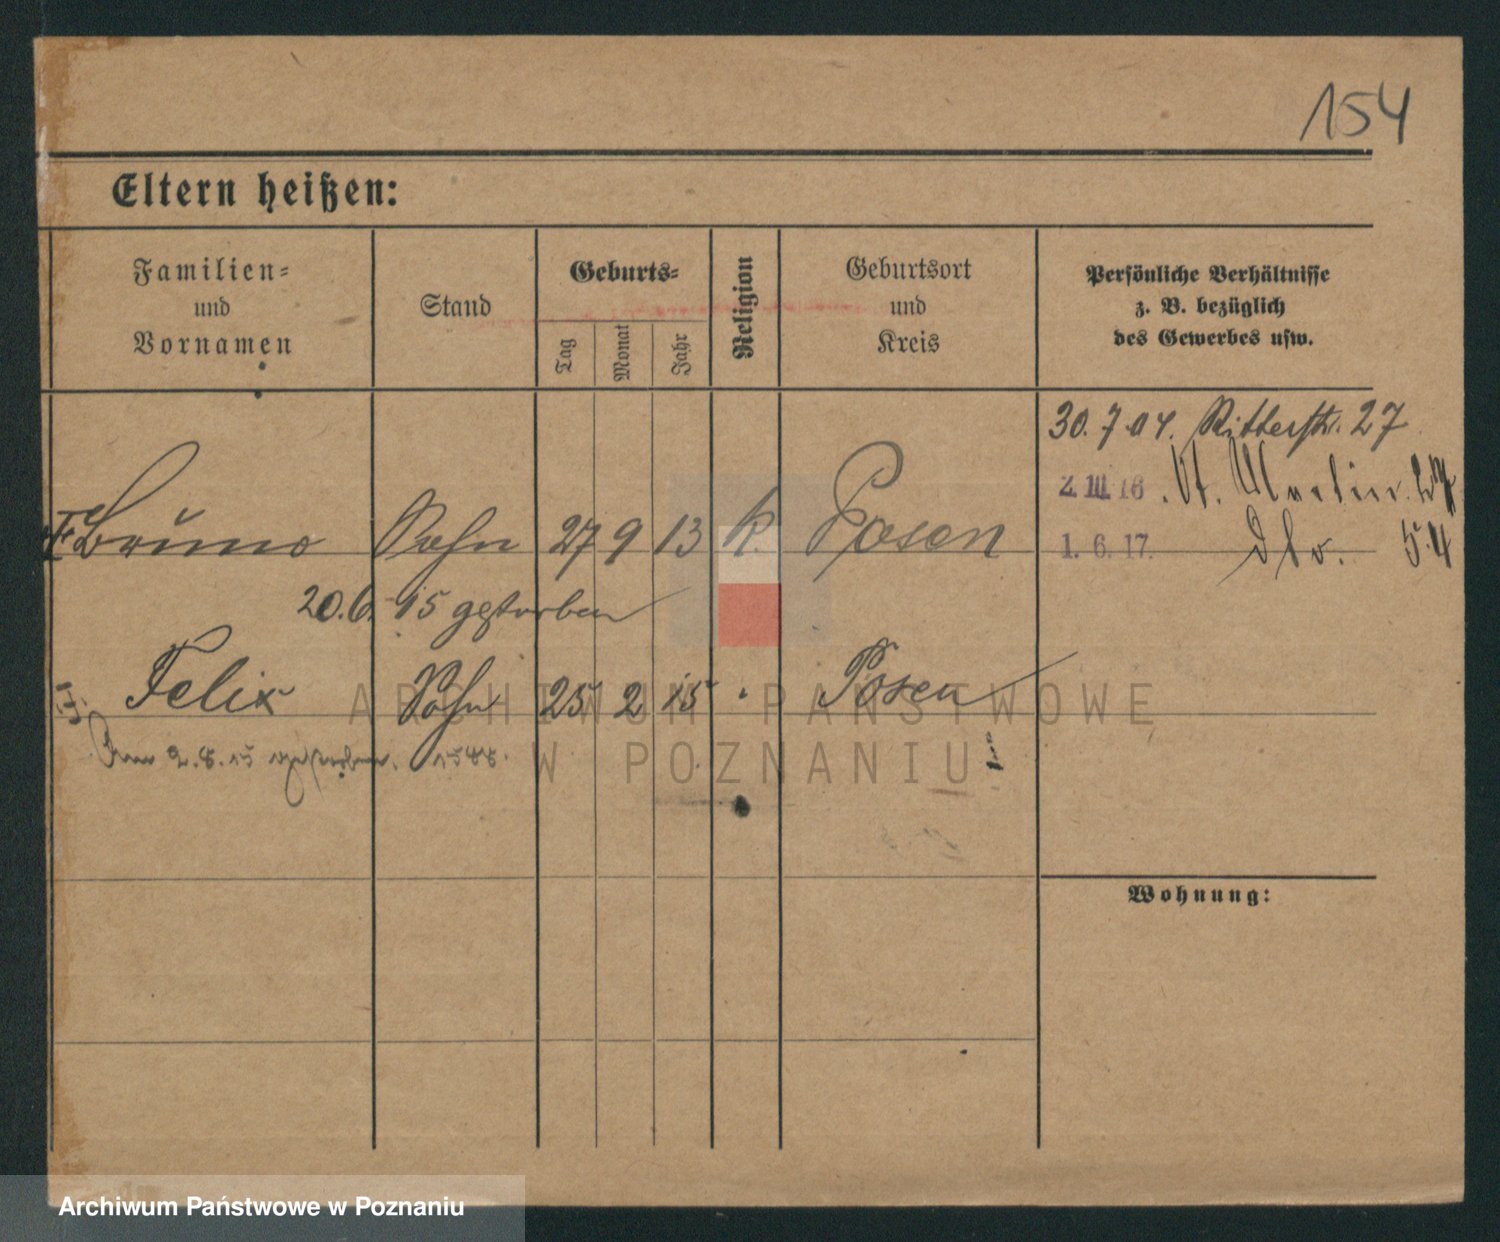 154
Eltern heißen:
Familien-
und
Vornamen
Stand
Geburts-
Tag
Monat
Jahr
Religion
Geburtsort
und
Kreis
Persönliche Verhältnisse
z. B. bezüglich
des Gewerbes usw.
30.7.04. Ritterstr. 27
2. III 16. St. Martin 27
Bruno Sohn 27 9 13 k. Posen
1. 6. 17. 54
20.6. 15 gestorben
Felix Sohn 25 2 15 " Posen
Am 2.8.15 gestorben.
Wohnung:
ARCHIWUM PAŃSTWOWE
W POZNANIU
Archiwum Państwowe w Poznaniu